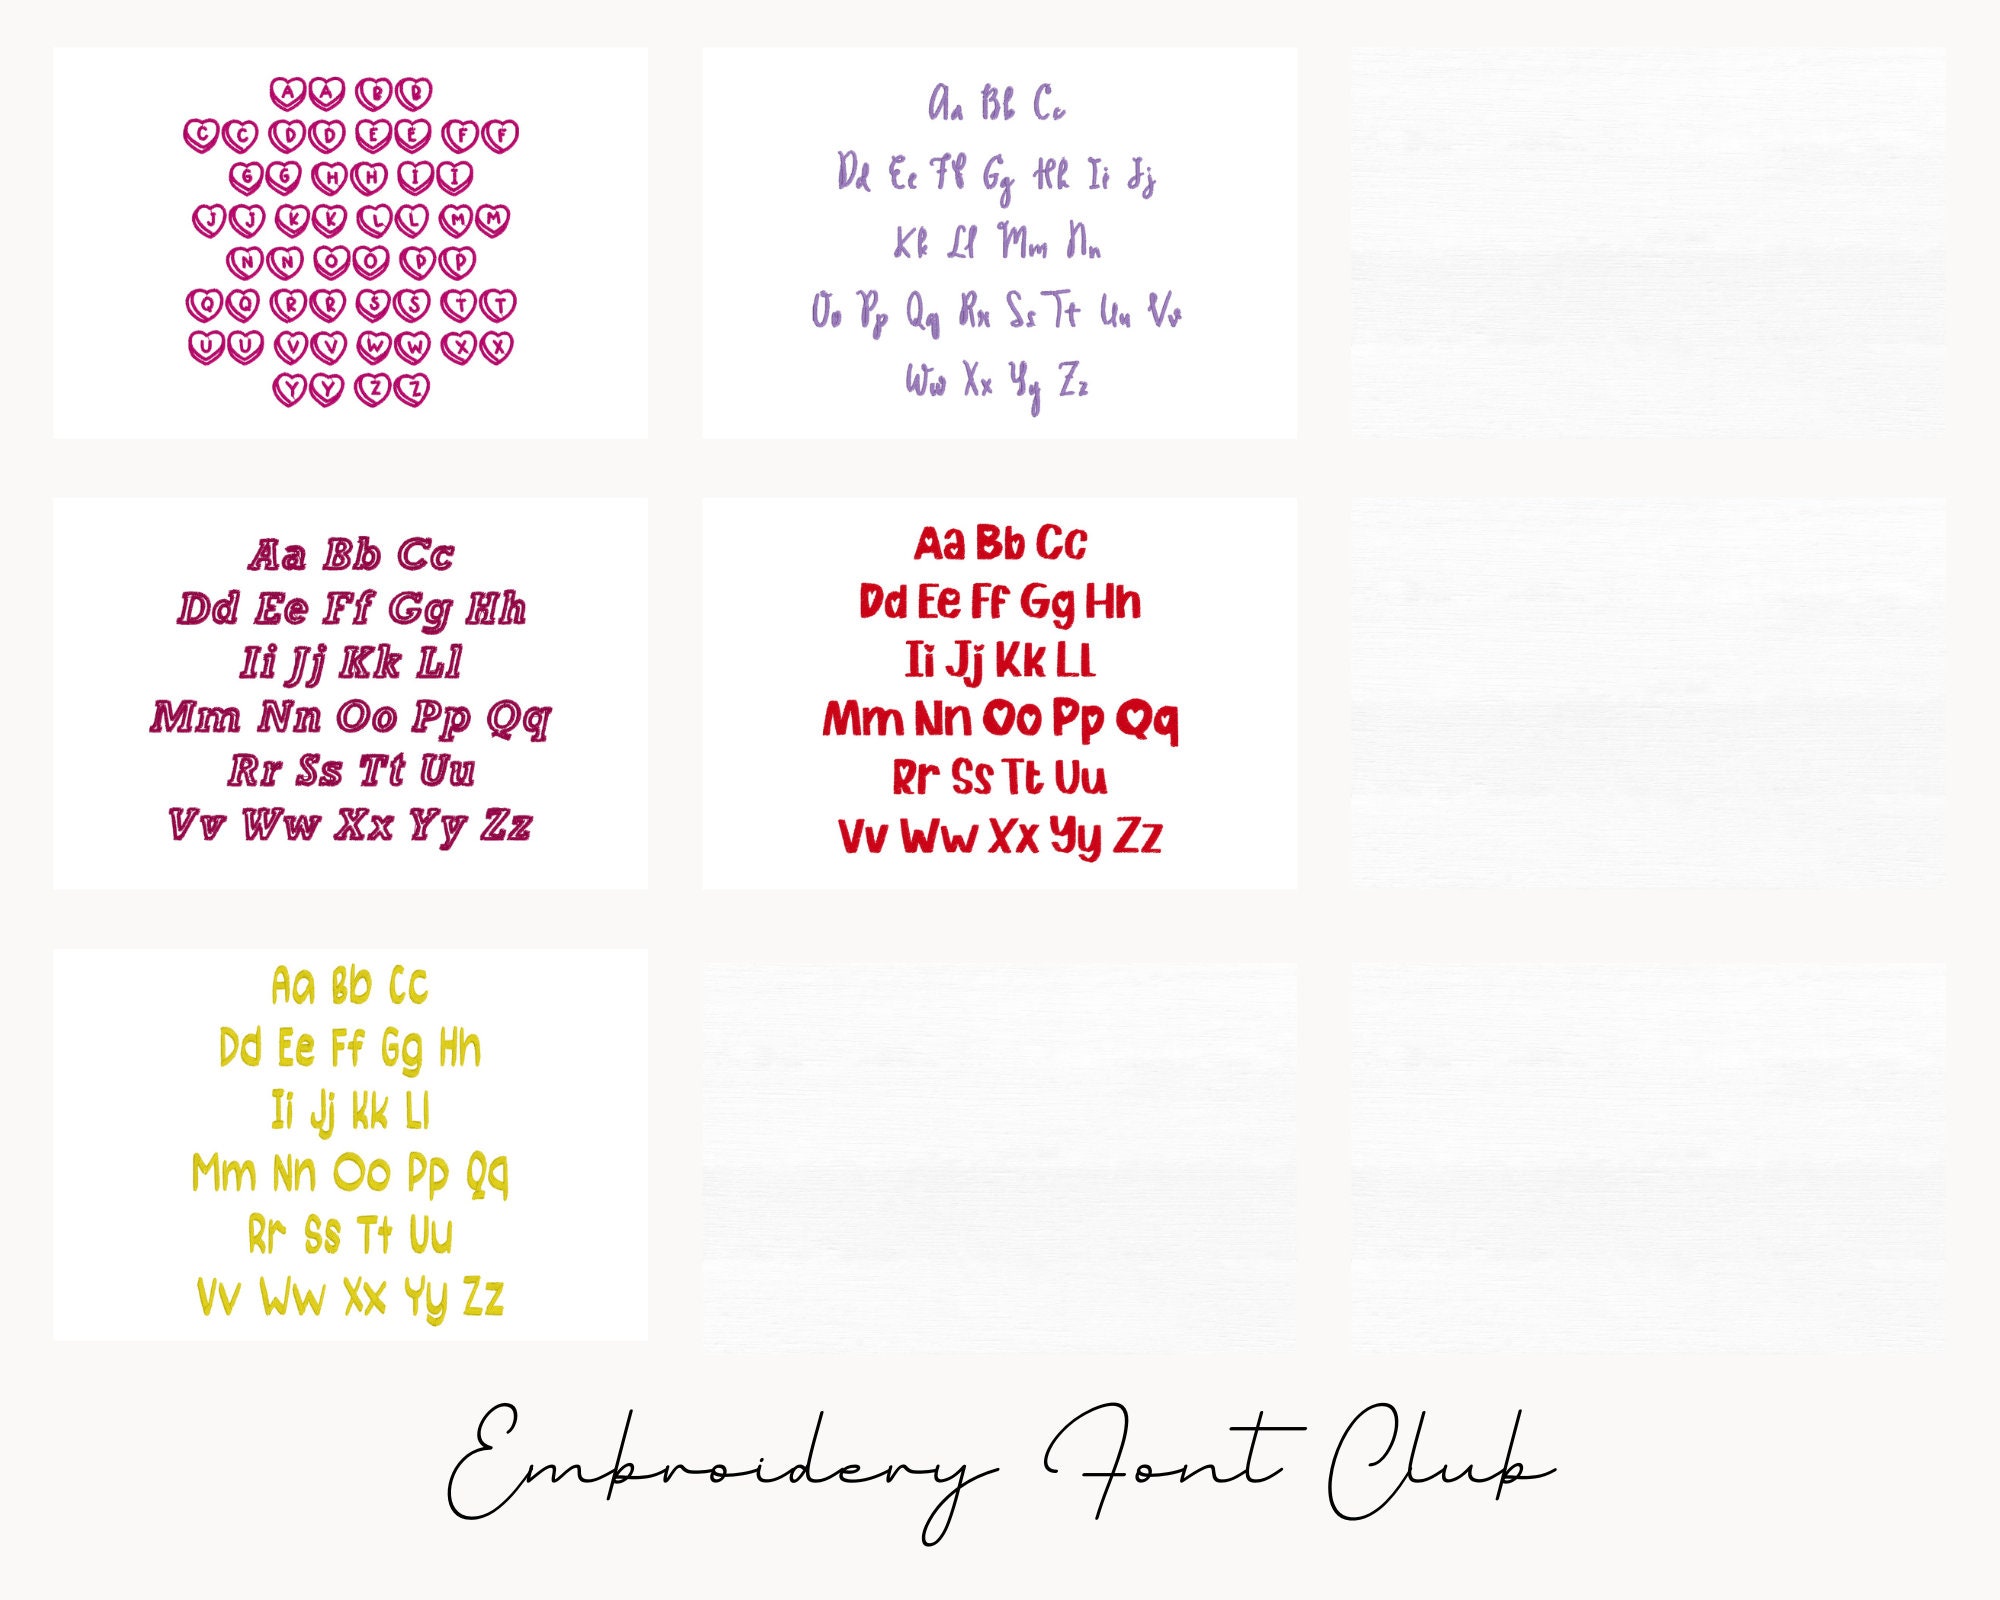 A A B B
C C D D E E F F
G G H H I I
J J K K L L M M
N N O O P P
Q Q R R S S T T
U U V V W W X X
Y Y Z Z
Aa Bb Cc
Dd Ee Ff Gg Hh Ii Jj
Kk Ll Mm Nn
Oo Pp Qq Rr Ss Tt Uu Vv
Ww Xx Yy Zz
Aa Bb Cc
Dd Ee Ff Gg Hh
Ii Jj Kk Ll
Mm Nn Oo Pp Qq
Rr Ss Tt Uu
Vv Ww Xx Yy Zz
Aa Bb Cc
Dd Ee Ff Gg Hh
Ii Jj Kk Ll
Mm Nn Oo Pp Qq
Rr Ss Tt Uu
Vv Ww Xx Yy Zz
Aa Bb Cc
Dd Ee Ff Gg Hh
Ii Jj Kk Ll
Mm Nn Oo Pp Qq
Rr Ss Tt Uu
Vv Ww Xx Yy Zz
Embroidery Font Club